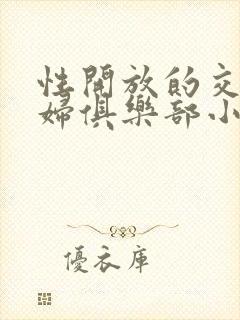 性開放的交
婦俱樂部小
優衣庫